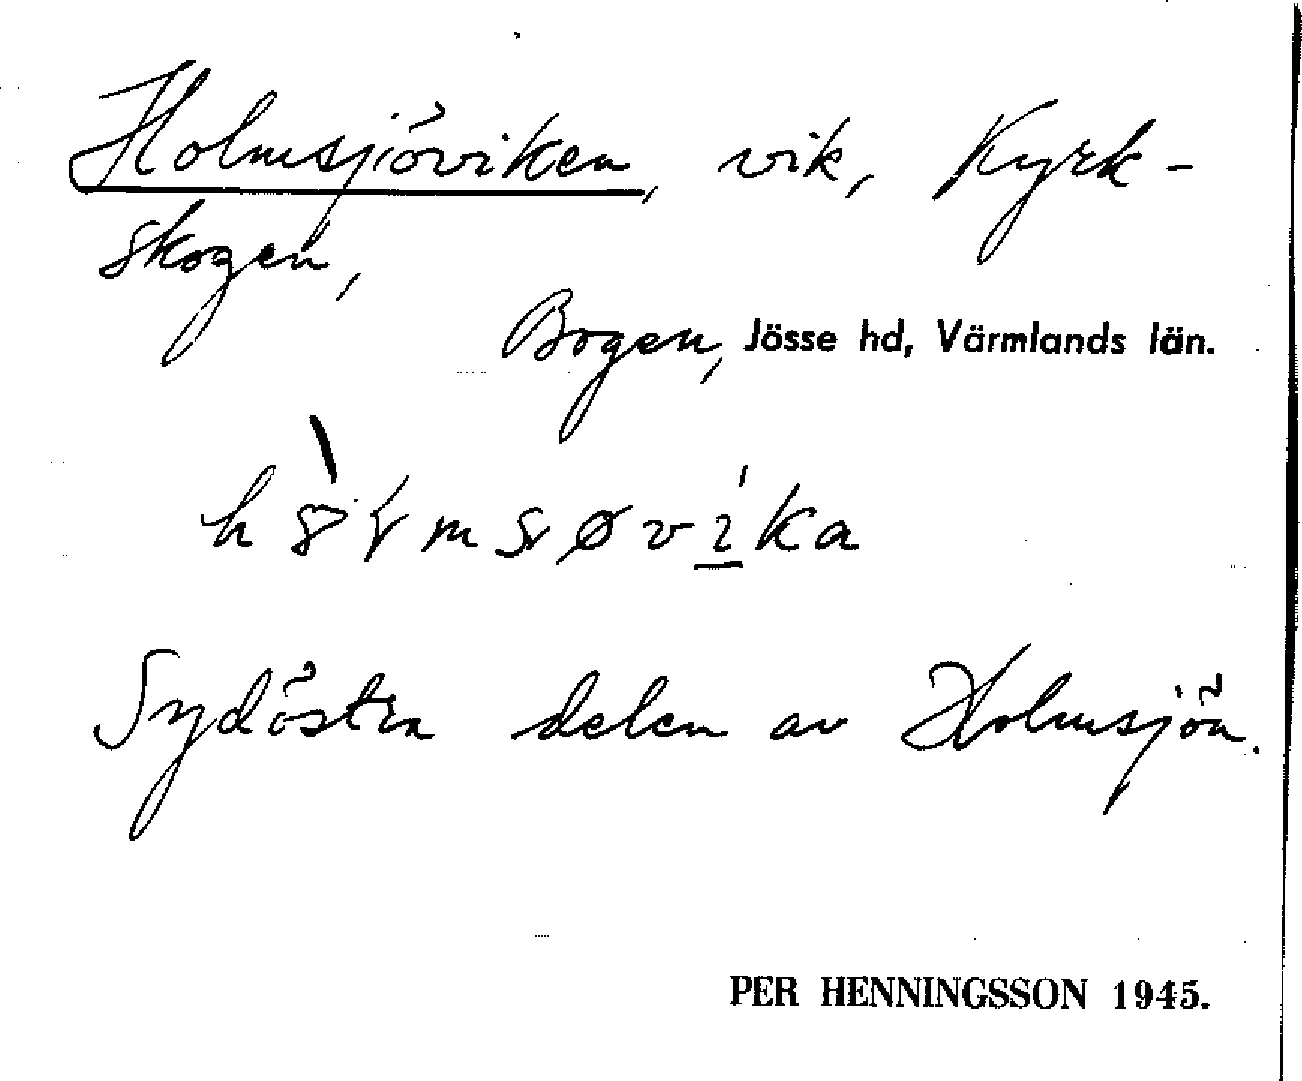 Holmsjöviken, vik, Kyrk-
skogen,
Bogen, Jösse hd, Värmlands län.
Sydöstra delen av Holmsjön.
PER HENNINGSSON 1945.